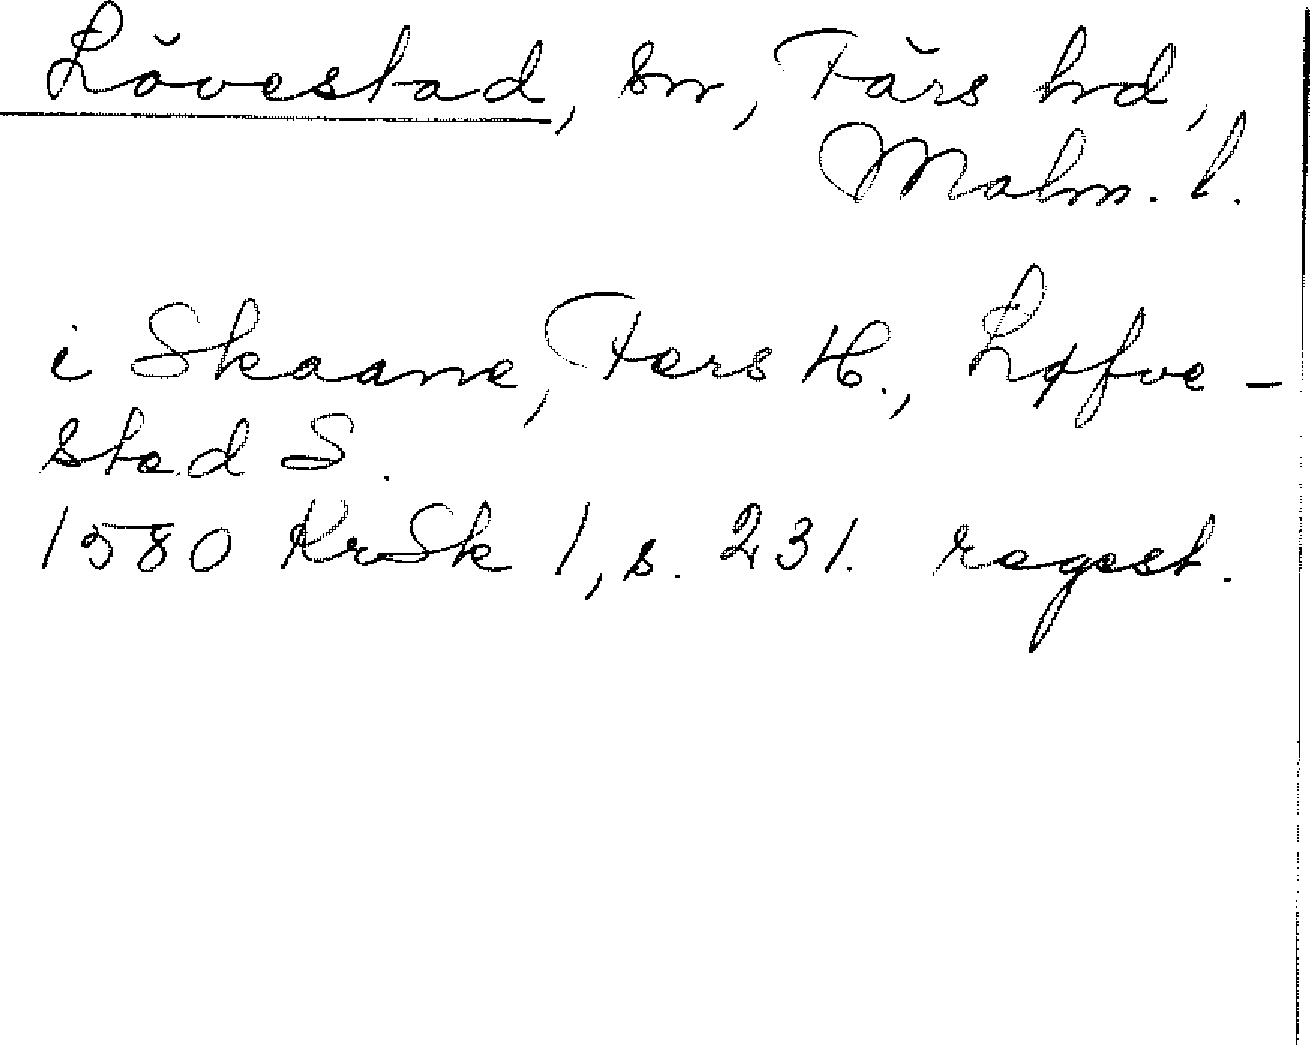 Lövestad, sn, Färs hrd,
Malm. l.
i Skaane, Fers H., Løfve-
stad S.
1580 KrSk 1, s. 231. regest.